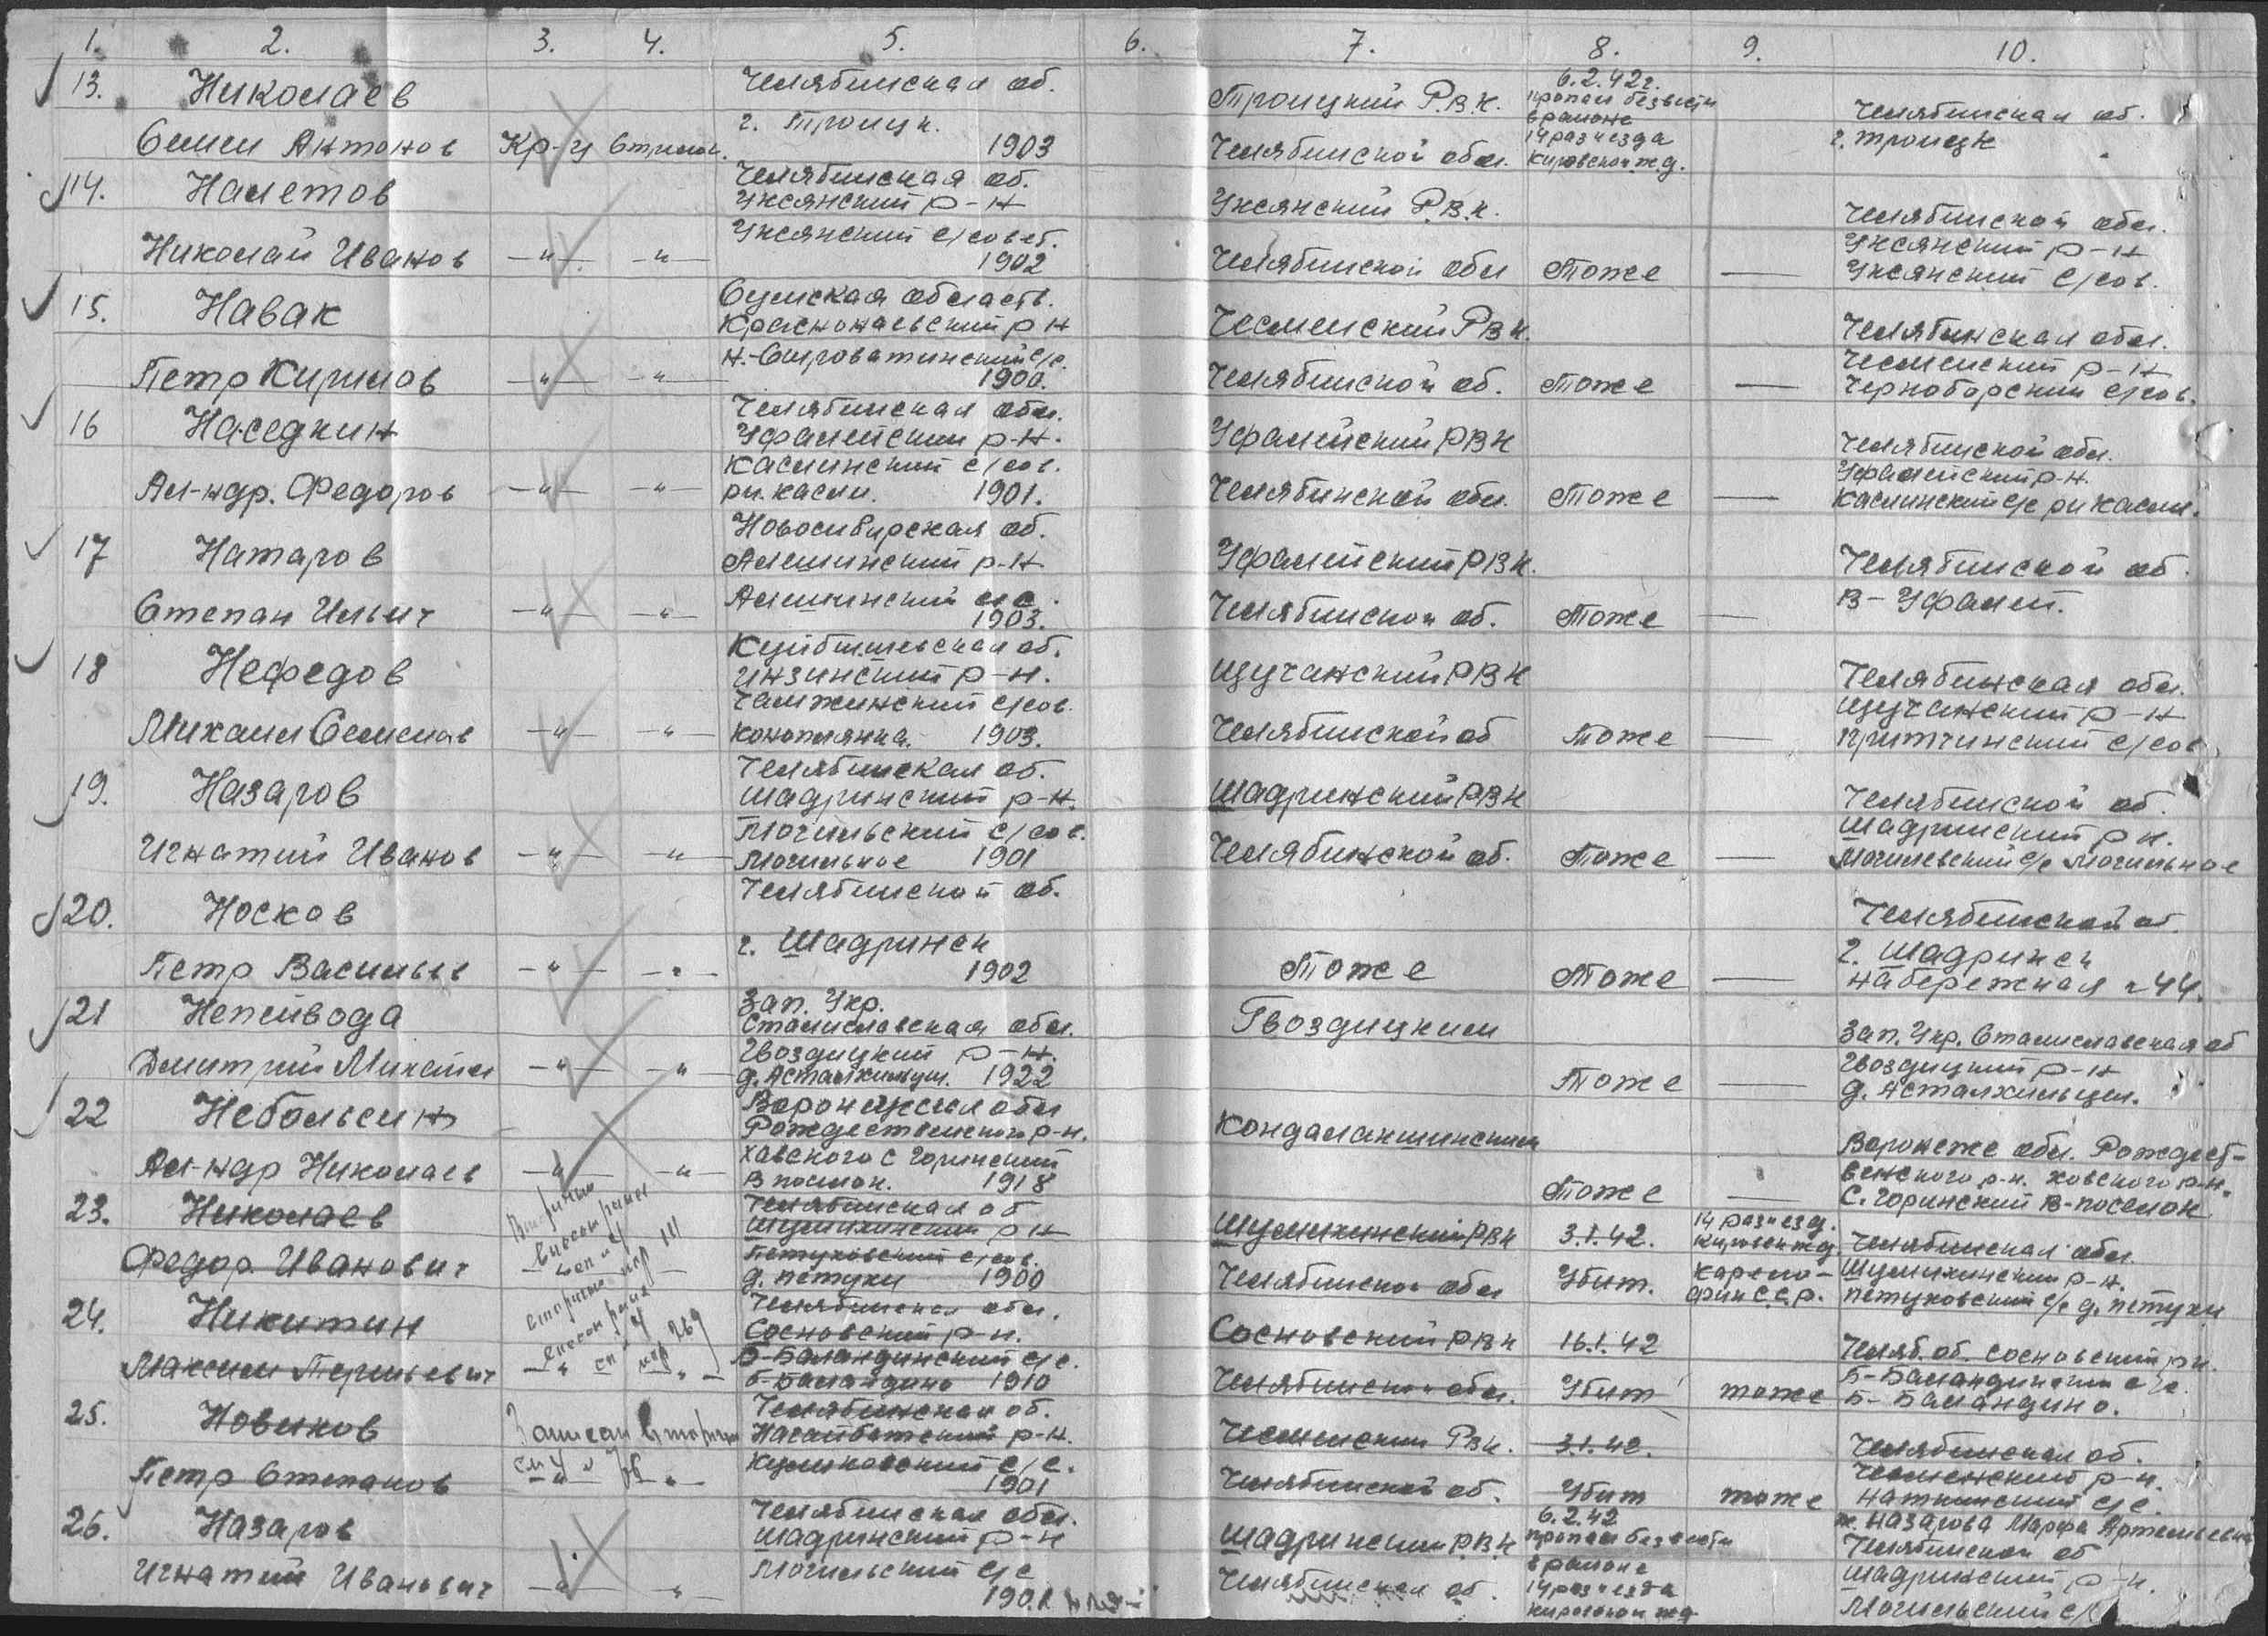 1. 2. 3. 4. 5. 6. 7. 8. 9. 10.
13. Николаев
Семен Антонов Кр-ц Стрелок.
Челябинская об.
г. Троицк.
1903
Троицкий Р.В.К.
Челябинской обл.
6.2.42г.
пропал безвести
в районе
14 разъезда
Кировской ж.д.
Челябинская об.
г. Троицк
14. Налетов
Николай Иванов -"- -"-
Челябинская об.
Уксянский р-н
Уксянский с/совет.
1902
Уксянский Р.В.К.
Челябинской обл
Тоже —
Челябинской обл.
Уксянский р-н
Уксянский с/сов.
15. Навак
Петр Кирилов -"- -"-
Сумская область.
Краснопаевский р н
Н.-Сыроватинский с/с.
1900.
Чесменский РВК.
Челябинской об.
Тоже —
Челябинская обл.
Чесменский р-н
Черноборский с/сов.
16 Наседкин
Ал-ндр. Федоров -"- -"-
Челябинская обл.
Уфалейский р-н.
Каслинский с/сов.
рп. Касли. 1901.
Уфалейский РВК
Челябинской обл.
Тоже —
Челябинской обл.
Уфалейский р-н.
Каслинский с/с рп Касли.
17 Натаров
Степан Ильич -"- -"-
Новосибирская об.
Алешинский р-н
Алешинский с
1903.
Уфалейский РВК.
Челябинской об.
Тоже —
Челябинской об.
В-Уфалей.
18 Нефедов
Михаил Семенов -"- -"-
Куйбышевская об.
Инзинский р-н.
Чамжинский с/сов.
Коноплянка. 1903.
Щучанский РВК
Челябинской об
Тоже —
Челябинская обл.
Щучанский р-н
Притчинский с/сов.
19. Назаров
Игнатий Иванов -"- -"-
Челябинская об.
Шадринский р-н.
Могильский с/сов.
Могильное 1901
Шадринский РВК
Челябинской об.
Тоже —
Челябинской об
Шадринский р н.
Могилевский с/с Могильное
20. Носков
Петр Васильев -"- -"-
Челябинской об.
г. Шадринск
1902
Тоже
Тоже —
Челябинской об.
г. Шадринск
Набережная 44.
21 Непейвода
Дмитрий Михайл -"- -"-
Зап. Укр.
Станиславская обл.
Гвоздицкий р-н.
д. Асталкильцы. 1922
Гвоздицким
Тоже —
Зап. Укр. Станиславская об
Гвоздицкий р-н
д. Асталкильцы.
22 Небольсин
Ал-ндр Николаев -"- -"-
Воронежская обл
Рождественского р-н.
Хавского с Горинский
В поселок. 1918
Кондалакшинским
Тоже —
Воронеже обл. Рождест-
венского р-н. Ховского р-н.
С. Горинский В-поселок
23. Николаев
Федор Иванович
Вторично
вписан ранее
сп № 4
пор 111
Челябинская об
Шумихинский р н
Петуховский с/сов.
д. Петухи 1900
Шумихинский РВК
Челябинской обл
3.1.42.
Убит.
14 разъезд.
Кировск ж д.
Карело-
фин С.С.Р.
Челябинская обл.
Шумихинский р-н.
Петуховский с/с д. Петухи
24. Никитин
Максим
вторично
вписан ранее
сп 4
пор 269
Челябинская обл.
Сосновский р-н.
Б-Баландинский с/с.
Б-Баландино 1910
Сосновский РВК
Челябинской обл.
16.1.42
Убит
тоже
Челяб. об. Сосновский рн.
Б-Баландинский с/с.
Б-Баландино.
25. Новиков
Петр Степанов
Записан вторично
сп 4 № 78
Челябинская об.
Нагайбакский р-н.
Куликовский с/с.
1901
Чесменский РВК.
Челябинской об.
3.1.42.
Убит
тоже
Челябинская об.
Чесменский р-н.
с/с.
26. Назаров
Игнатий Иванович -"- -"-
Челябинская обл.
Шадринский р-н
Могильский с/с
1901
Шадринский Р.В.К
Челябинская об.
6.2.42
пропал безвести
в районе
14 разъезда
Кировской жд
ж. Назарова Марфа Артемьевна
Челябинской об
Шадринский р-н.
Могильский с/с